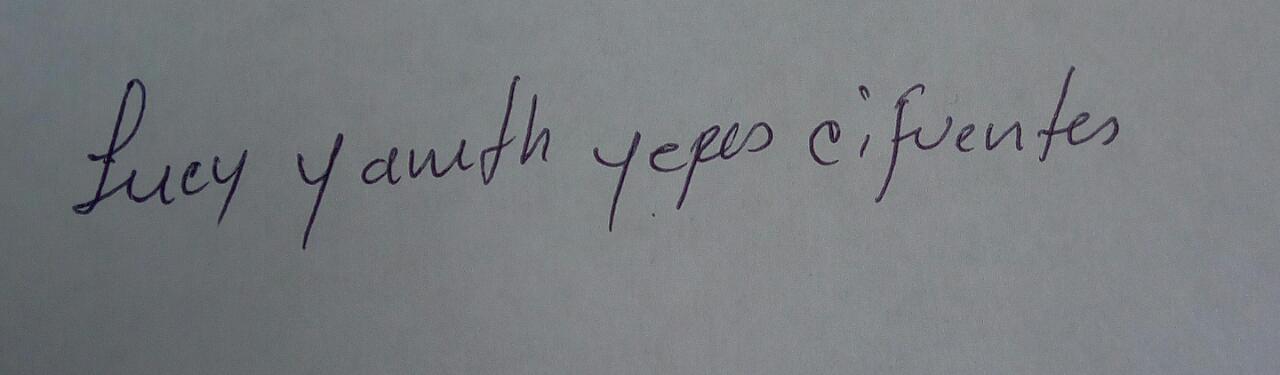 Lucy Yaneth yepes cifuentes